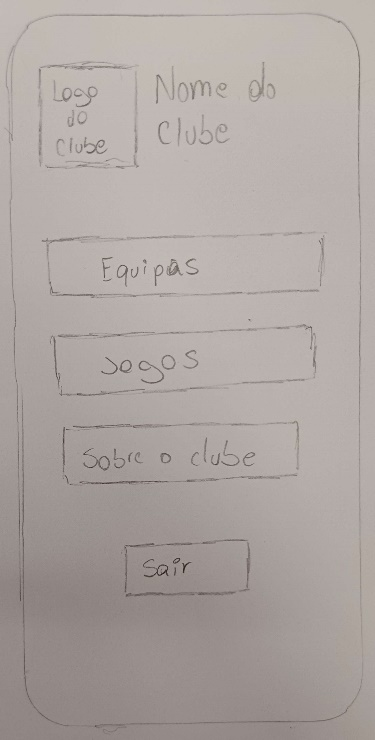 Logo
do
Clube
Nome do
Clube
Equipas
Jogos
Sobre o clube
Sair